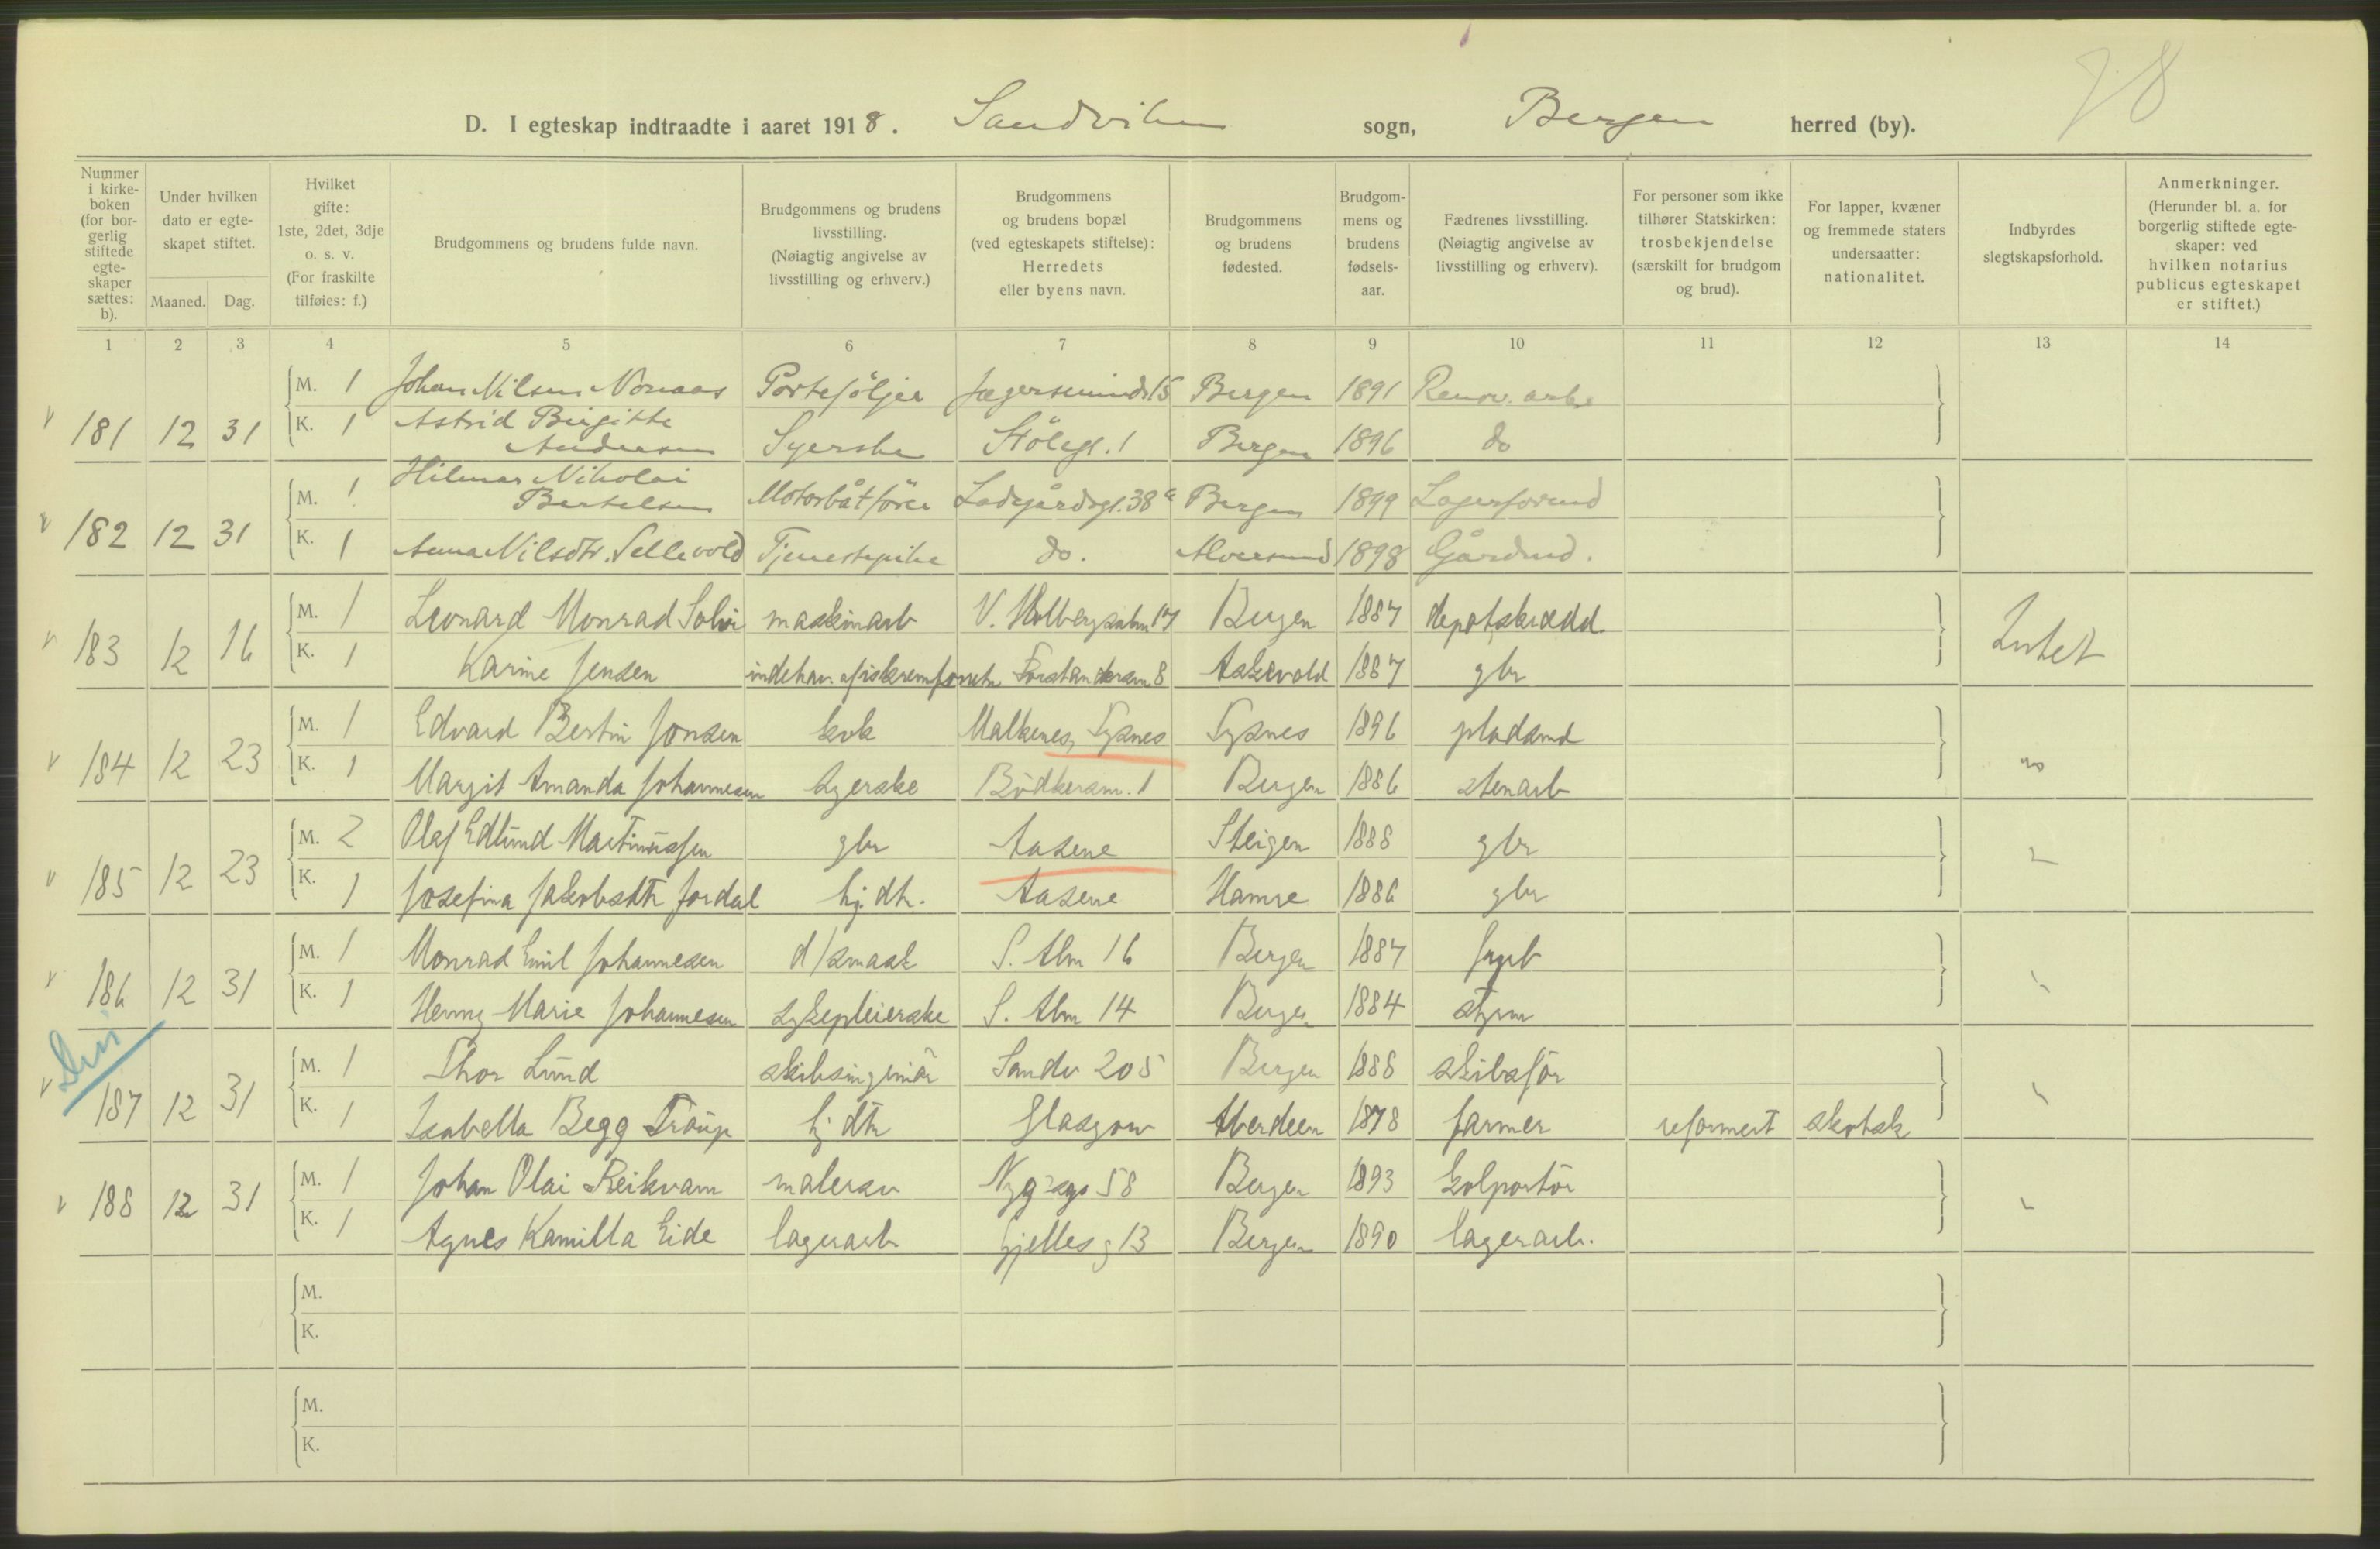 78
D. I egteskap indtraadte i aaret 1918. Sandviken sogn, Bergen herred (by).
Nummer i kirke-boken (for bor-gerlig stiftede egte-skaper sættes: b).
Under hvilken dato er egte-skapet stiftet.
Maaned. Dag.
Hvilket gifte: 1ste, 2det, 3dje o. s. v. (For fraskilte tilføies: f.)
Brudgommens og brudens fulde navn.
Brudgommens og brudens livsstilling. (Nøiagtig angivelse av livsstilling og erhverv.)
Brudgommens og brudens bopæl (ved egteskapets stiftelse): Herredets eller byens navn.
Brudgommens og brudens fødested.
Brudgom-mens og brudens fødsels-aar.
Fædrenes livsstilling. (Nøiagtig angivelse av livsstilling og erhverv).
For personer som ikke tilhører Statskirken: trosbekjendelse (særskilt for brudgom og brud).
For lapper, kvæner og fremmede staters undersaatter: nationalitet.
Indbyrdes slegtskapsforhold.
Anmerkninger. (Herunder bl. a. for borgerlig stiftede egte-skaper: ved hvilken notarius publicus egteskapet er stiftet.)
1 2 3 4 5 6 7 8 9 10 11 12 13 14
M. 1 Johan Nilsen Noraas Portefôljer 15 Bergen 1891 Renov. arb.
181 12 31 K. 1 Astrid Birgitte Andersen Syerske Stölegt. 1 Bergen 1896 do
M. 1 Hilmar Nikolai Bertelsen Motorbåtförer Ladegårdsgt. 38a Bergen 1899 Lagerformd
182 12 31 K. 1 Anna Nilsdtr. Sellevold Tjenestepike do. Alversund 1898 Gårdmd.
M. 1 Leonard Monrad Solvi maskinarb V. Holbergsalm 17 Bergen 1887 depotskrædd.
183 12 16 K. 1 Karine Jensen indehav. Forstandersm 8 Askevold 1887 gbr Intet
M. 1 Edvard Bertin Jonsen kok Malkenes, Fysnes Fysnes 1896 pladsmd
184 12 23 K. 1 Margit Amanda Johannesen syerske Bödkersm. 1 Bergen 1886 stenarb
M. 2 Olaf Edlund Martinussen gbr Aasene Steigen 1888 gbr
185 12 23 K. 1 Josefina Jakobsdtr Jordal hj. dtr. Aasene Hamre 1886 gbr
M. 1 Monrad Emil Johannesen d/smask S. Alm 16 Bergen 1887
186 12 31 K. 1 Henny Marie Johannesen sykepleierske S. Alm 14 Bergen 1884 styrm
M. 1 Thor Lund skibsingeniör Sandv 205 Bergen 1888 skibsför
187 12 31 K. 1 Isabella Begg Troup hj dtr Glasgow Aberdeen 1878 farmer reformert skotsk
M. 1 Johan Olai Reikvam malersv Nyg 58 Bergen 1893 kolportör
188 12 31 K. 1 Agnes Kamilla Eide lagerarb Gjelles g 13 Bergen 1890 lagerarb.
M.
K.
M.
K.